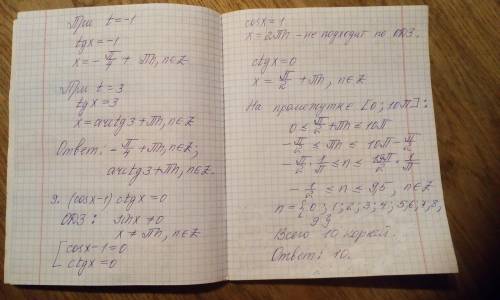 При t=-1
tgx=-1
x=-π/4 + πn, n∈Z
При t=3
tgx=3
x=arctg3+πn, n∈Z
Ответ: -π/4+πn, n∈Z;
arctg3+πn, n∈Z.
9. (cosx-1) ctgx=0
ОДЗ: sinx≠0
x≠πn, n∈Z
[cosx-1=0
ctgx=0
cosx=1
x=2πn - не подходит по ОДЗ.
ctgx=0
x=π/2+πn, n∈Z
На промежутке [0; 10π]:
0≤π/2+πn≤10π
-π/2≤πn≤10π-π/2
-π/2·1/π≤n≤19π/2·1/π
-1/2≤n≤9,5, n∈Z
n={0; 1; 2; 3; 4; 5; 6; 7; 8,
9}
Всего 10 корней.
Ответ: 10.